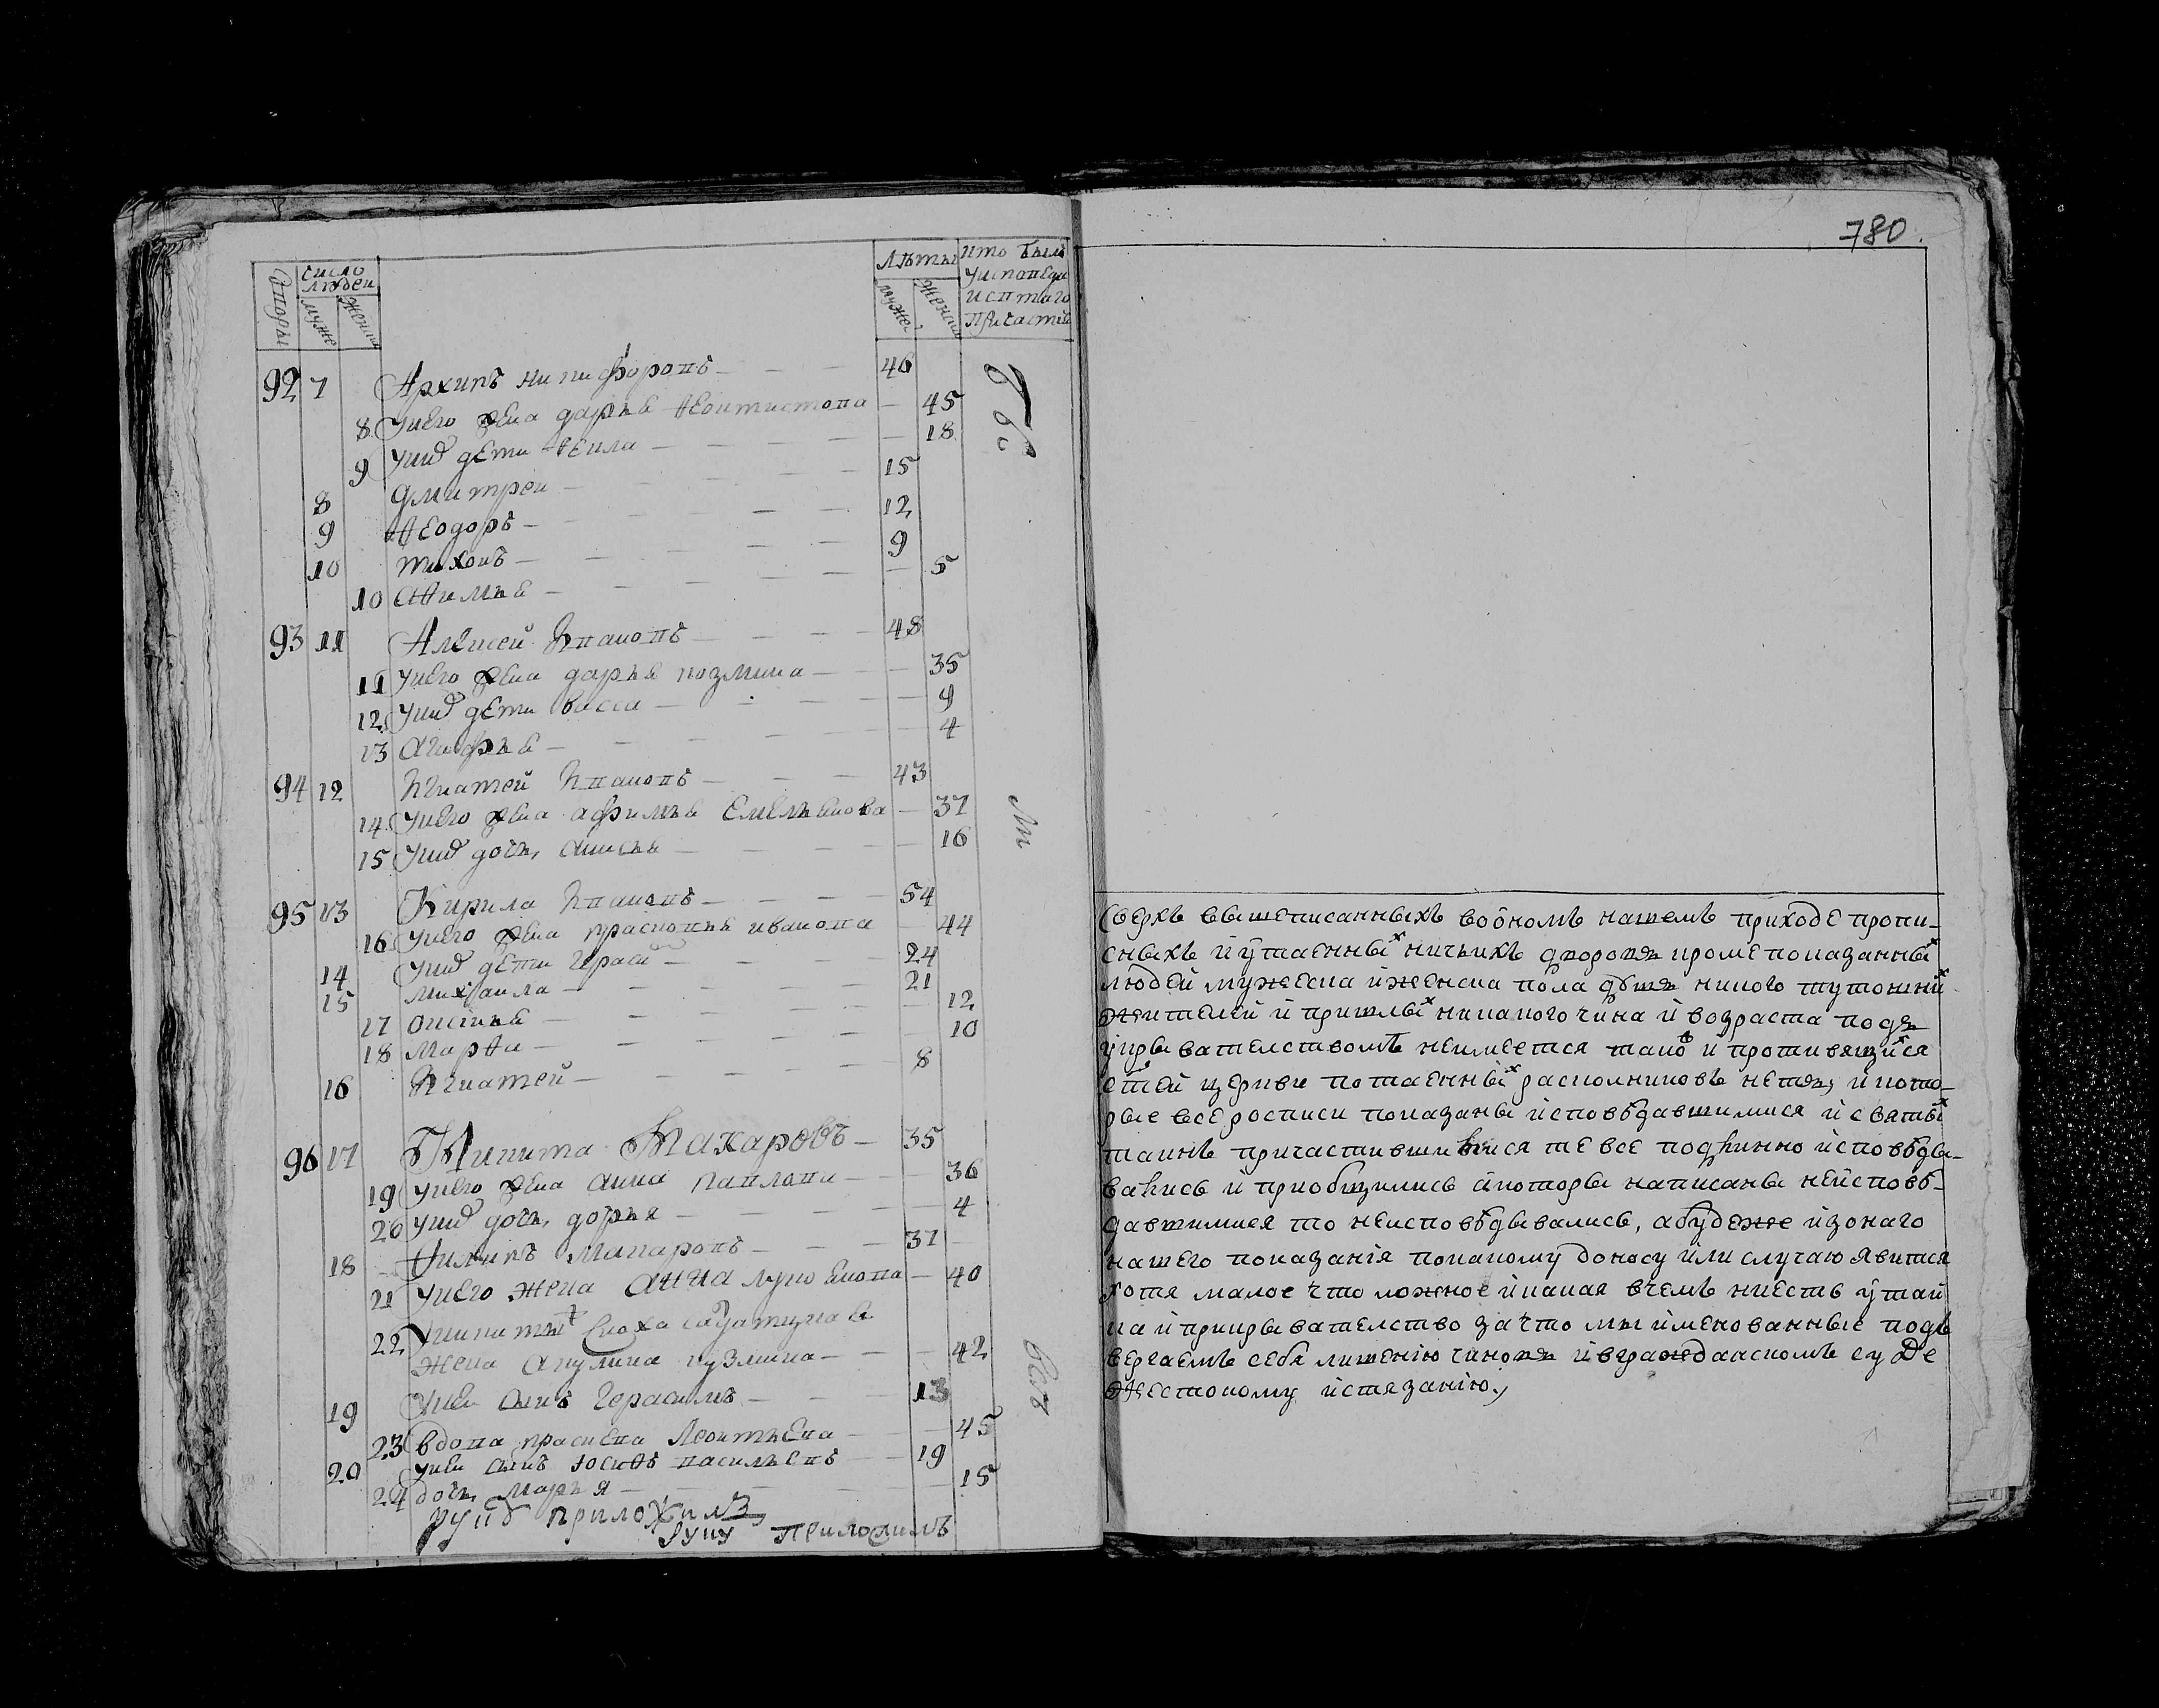 780
Дворы
число людеи
муже
женска
Лѣты
муже
женска
кто былъ
уисповеди
исвтаго
Причастия
92 7 Архипъ никифоровъ 46
8 унего жена дарья Ѳеоктистова 45
9 унихъ дети Ѳекла 18
8 дмитреи 15
9 Ѳеодоръ 12
10 тихонъ 9
10 Афимья 5
93 11 Алексей Ивановъ 48
11 унего жена дарья козмина 35
12 унихъ дети васса 9
13 агафья 4
94 12 Игнатей Ивановъ 43
14 унего жена афимья Емельянова 37
15 унихъ дочь анисья 16
95 13 Кирила Ивановъ 54
16 унего жена прасковья иванова 44
14 унихъ дети Гераси 24
15 михаила 21
17 оксинья 12
18 марѳа 10
16 Игнатей 8
96 17 Никита Макаровъ 35
19 унего жена анна павлова 36
20 унихъ дочь дарья 4
18 Филипъ макаровъ 37
21 унего жена анна лукоянова 40
22 уникиты сноха салдатцкая
жена акулина кузмина 42
19 унеи сынъ Герасимъ 13
23 вдова прасковья Леонтьева 45
20 унеи сынъ Іосифъ васильевъ 19
24 дочь марья 15
руку приложилъ
руку Приложилъ
Сверхъ вышеписанныхъ воономъ нашемъ приходе пропи-
сныхъ и утаенных ничьихъ дворовъ кроме показанных
людей мужеска и женска пола душъ никого тутошних
жителей и пришлых никакого чина и возраста подъ
укрывателствомъ неимеется такоже и противящихся
стей церкви потаенных расколниковъ нетъ, и кото-
рые все росписи показаны исповѣдавшимися и святых
таинъ причастившимися те все подлинно исповѣды-
вались и приобщились а которы написаны неиспов-
давшимися то неисповѣдывались, абудеже изонаго
нашего показанія покакому доносу или случаю явится
хотя малое что ложное и какая вчемъ ниесть утай
ка и прикрывателство зачто мы имянованные подъ
вергаемъ себя лишенію чиновъ и вгражданскомъ суде
жестокому истязанію,